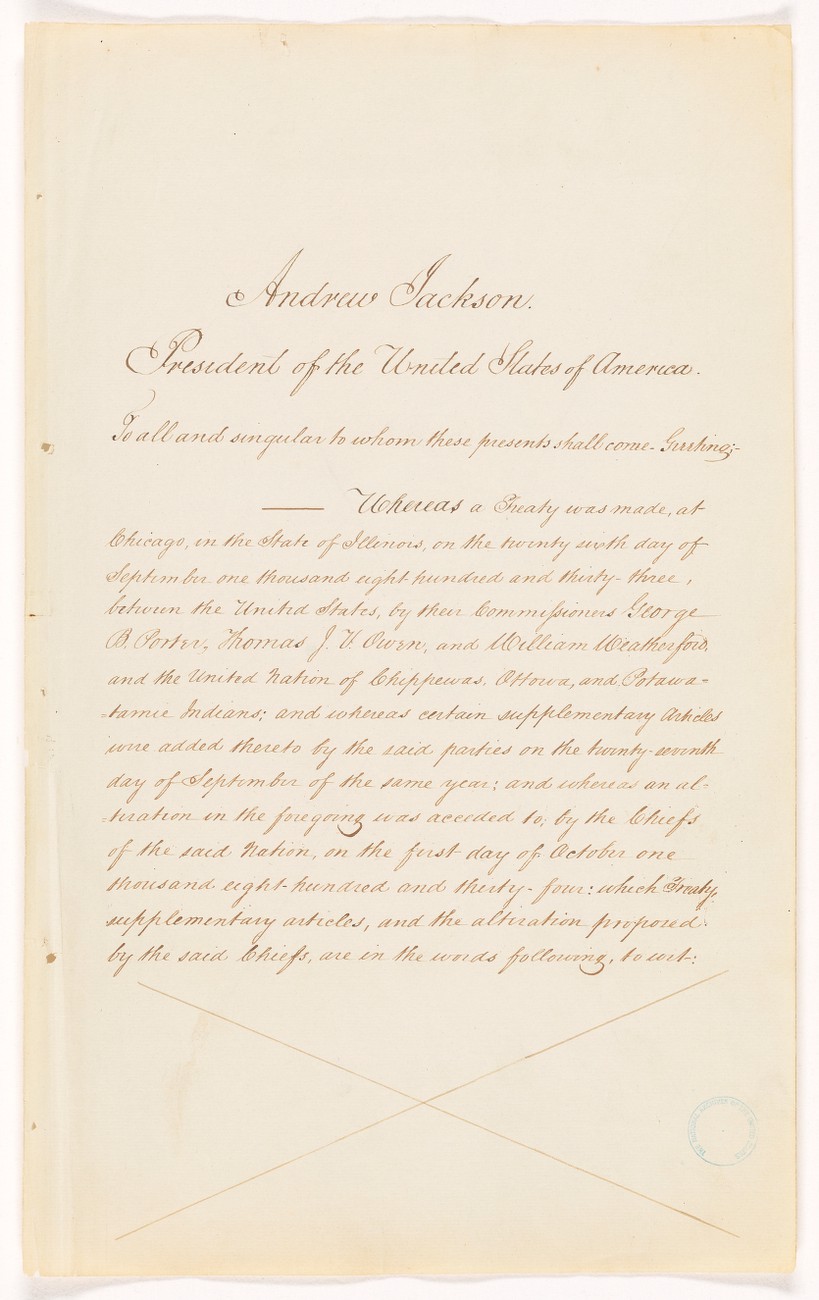 Andrew Jackson.
President of the United States of America.
To all and singular to whom these presents shall come - Greeting:-
Whereas a Treaty was made, at
Chicago, in the State of Illinois, on the twenty sixth day of
September one thousand eight hundred and thirty-three,
between the United States, by their Commissioners George
B. Porter, Thomas J. V. Owen, and William Weatherford,
and the United Nation of Chippewas, Ottowa, and Potawa=
=tamie Indians; and whereas certain supplementary Articles
were added thereto by the said parties on the twenty-seventh
day of September of the same year; and whereas an al-
=teration in the foregoing was acceded to, by the Chiefs
of the said Nation, on the first day of October one
thousand eight-hundred and thirty-four: which Treaty,
supplementary articles, and the alteration proposed
by the said Chiefs, are in the words following, to wit:
THE NATIONAL ARCHIVES OF THE UNITED STATES